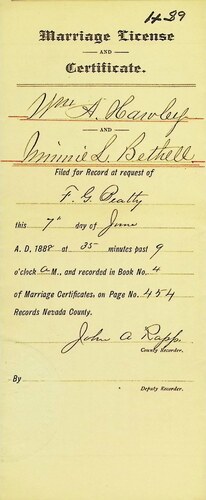 439
Marriage License
AND
Certificate.
Wm A. Hawley
AND
Minnie L. Bethell
Filed for Record at request of
F. G. Beatty
this 7th day of June
A. D. 1888 at 35 minutes past 9
o'clock a M., and recorded in Book No. 4
of Marriage Certificates, on Page No. 454
Records Nevada County.
John A Rapp
County Recorder.
By
Deputy Recorder.